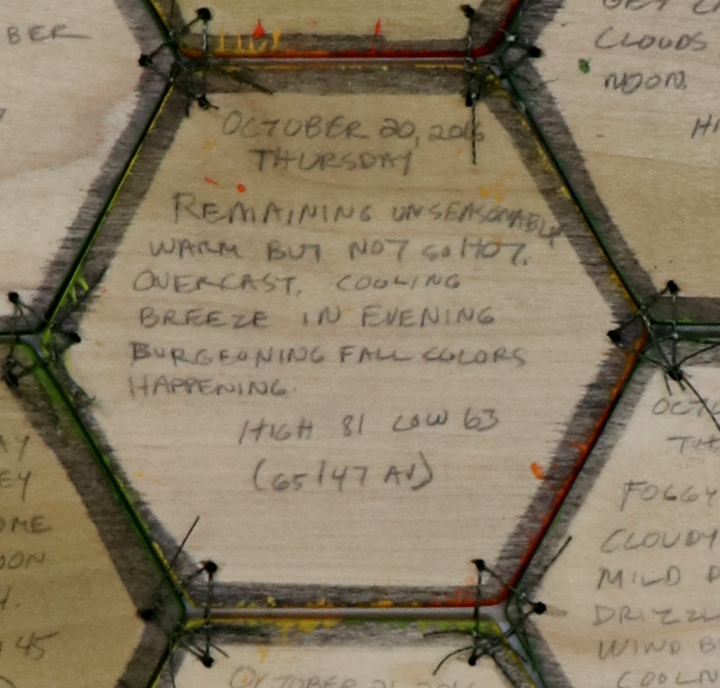 BER
CLOUDS
NOON.
HI
OCTOBER 20, 2016
THURSDAY
REMAINING UNSEASONABLY
WARM BUT NOT SO HOT.
OVERCAST, COOLING
BREEZE IN EVENING
BURGEONING FALL COLORS
HAPPENING.
HIGH 81 LOW 63
(65/47 AV)
AY
EY
OME
OON
45
OCT
TH
FOGGY
CLOUDY
MILD
DRIZZL
WIND B
COOLN
OCTOBER 21, 2016